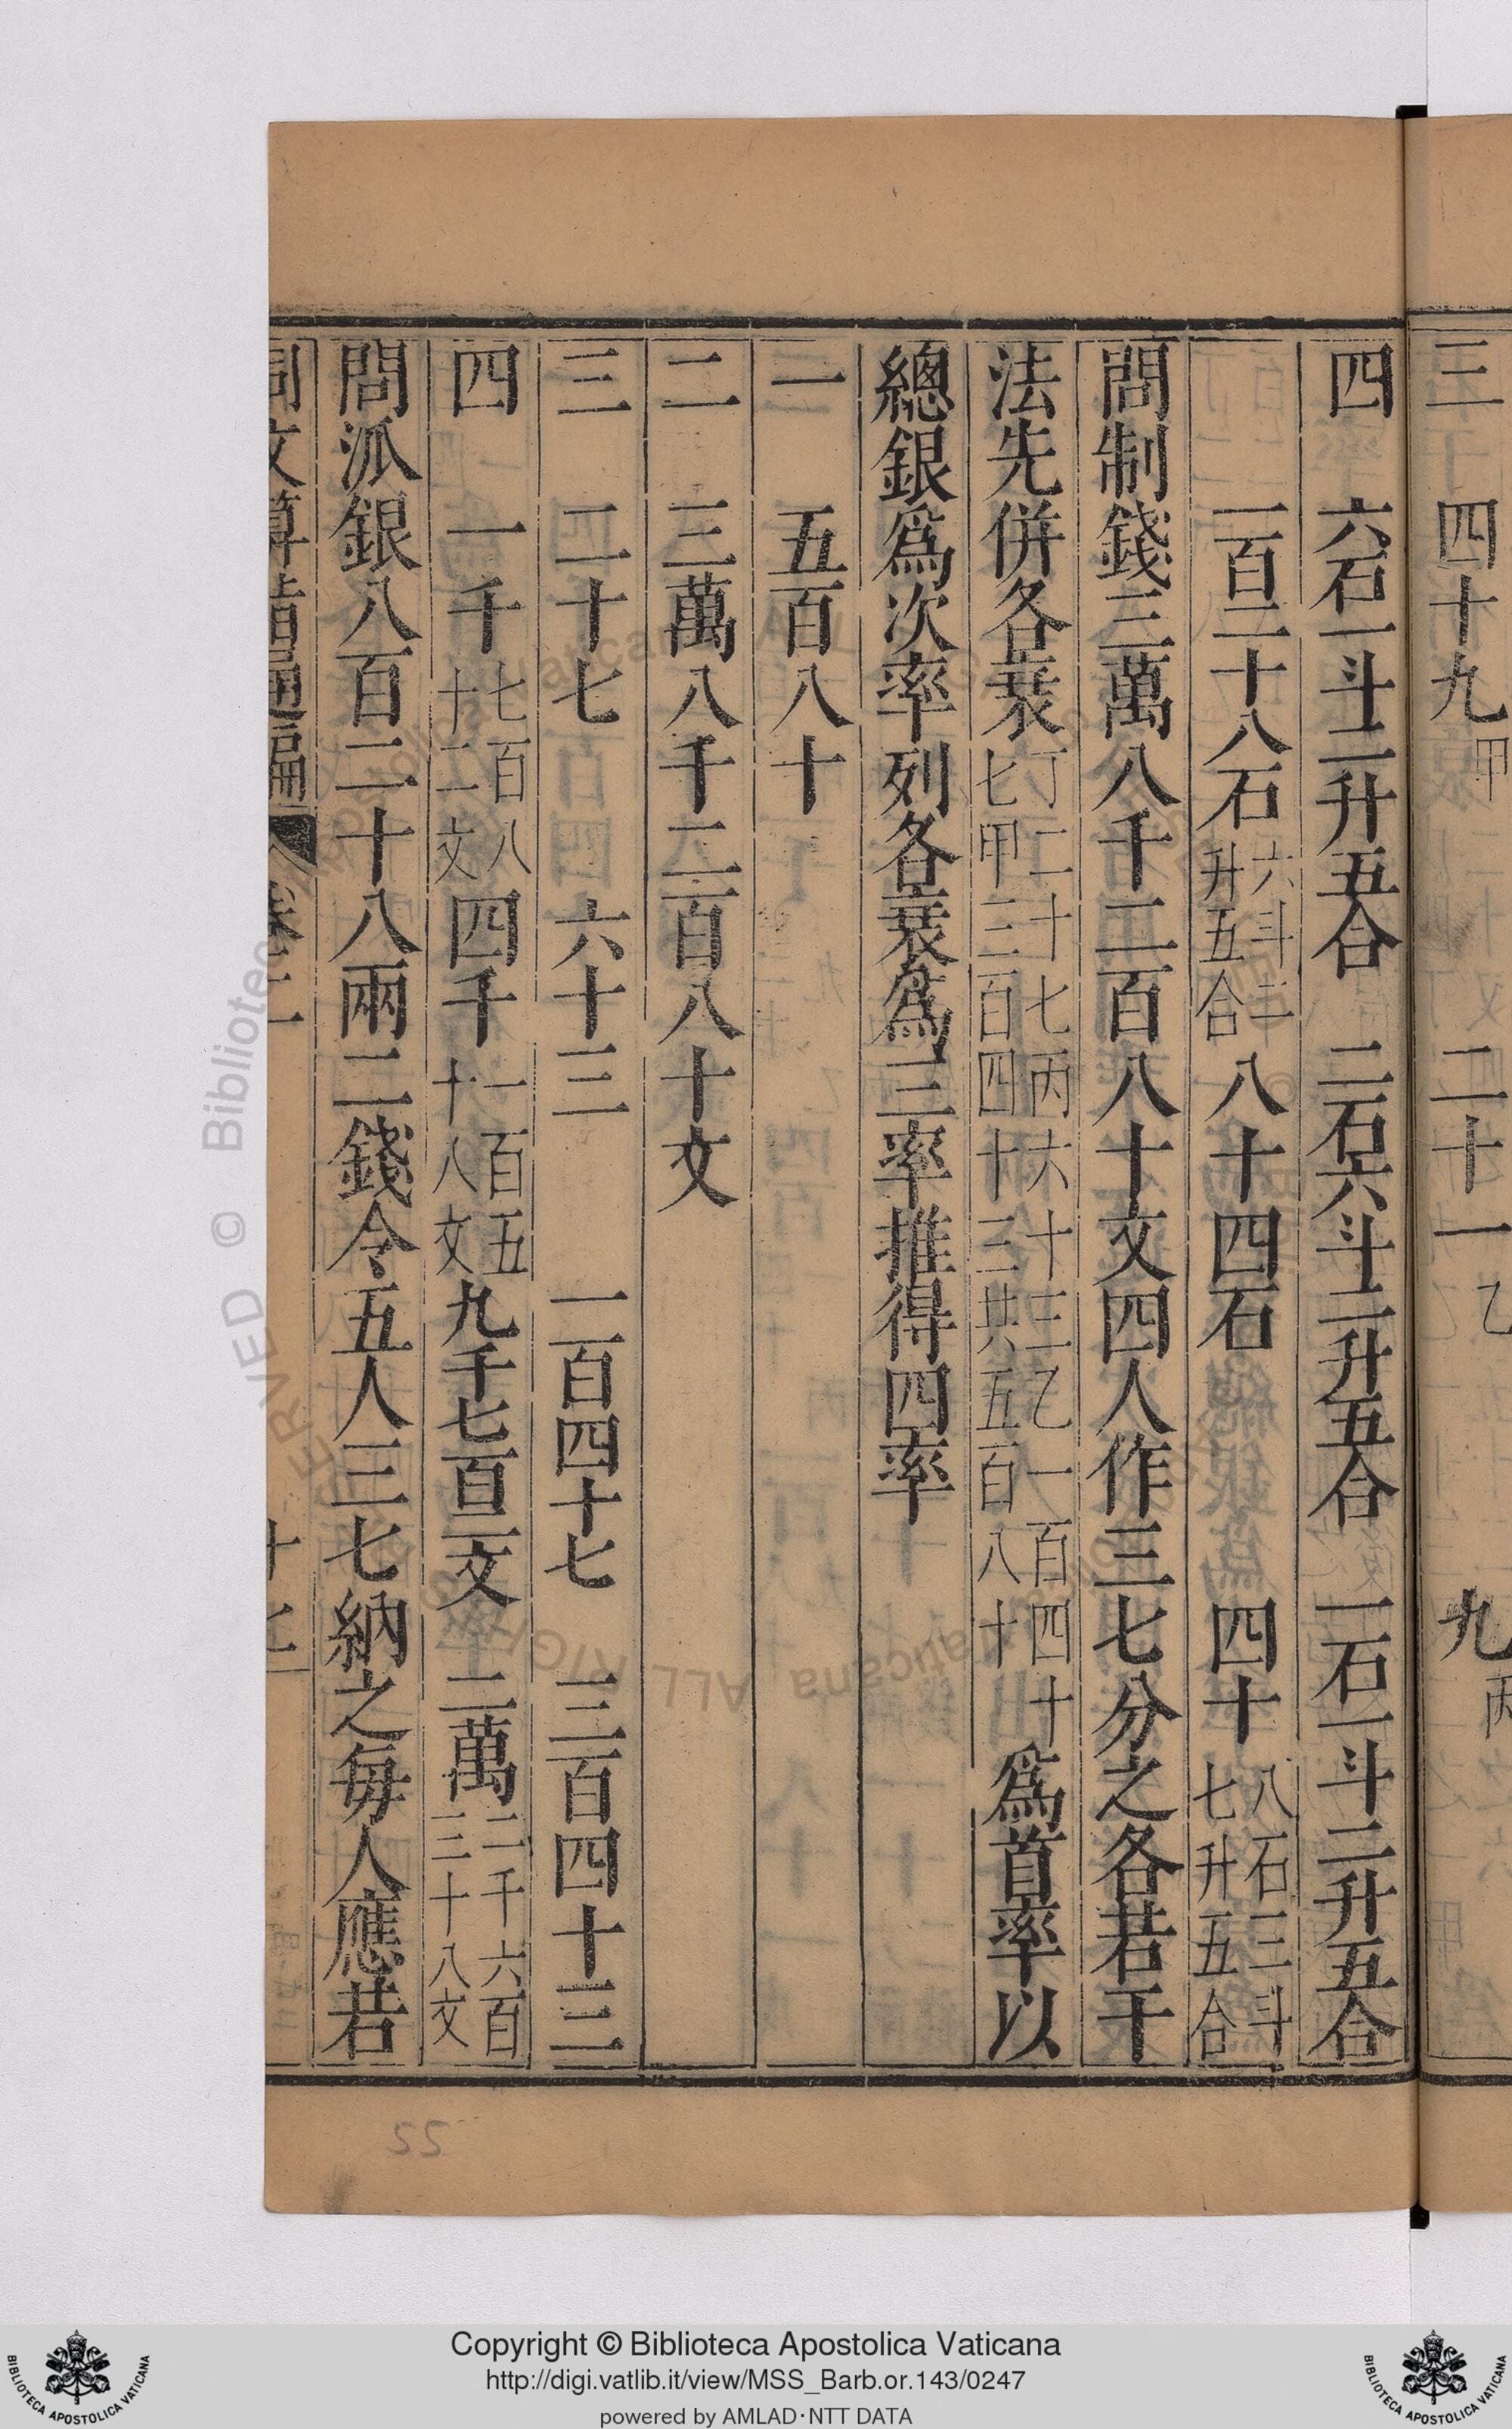 三 四十九甲 二十一乙 九丙
四 六石一斗二升五合 二石六斗二升五合 一石一斗二升五合
一百二十八石六斗二升五合 八十四石 四十八石三斗七升五合
問制錢三萬八千二百八十文四人作三七分之各若干
法先併各衰丁二十七丙六十三乙一百四十七甲三百四十三共五百八十爲首率以
總銀爲次率列各衰爲三率推得四率
一 五百八十
二 三萬八千二百八十文
三 二十七 六十三 一百四十七 三百四十三
四 一千七百八十二文 四千一百五十八文 九千七百二文 二萬二千六百三十八文
問派銀八百二十八兩二錢令五人三七納之每人應若
同文算指通編 卷二 十七
55
Copyright © Biblioteca Apostolica Vaticana
http://digi.vatlib.it/view/MSS_Barb.or.143/0247
powered by AMLAD·NTT DATA
BIBLIOTECA APOSTOLICA VATICANA
BIBLIOTECA APOSTOLICA VATICANA